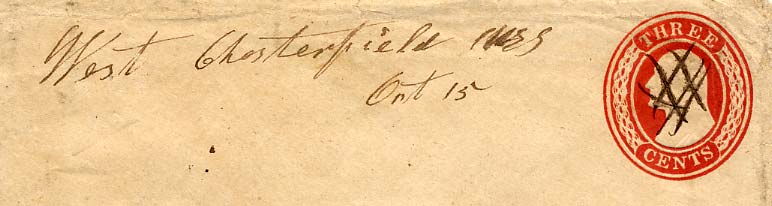 West Chesterfield Mass
Oct 15
THREE
CENTS